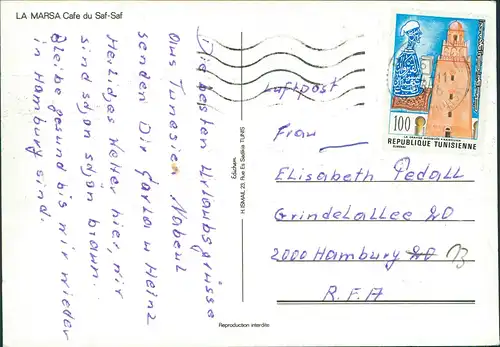 LA MARSA Cafe du Saf-Saf
Die besten Urlaubsgrüsse
aus Tunesien Nabeul
senden Dir Carla u Heinz
Herrliches Wetter hier, wir
sind schon schön braun.
Bleibe gesund bis wir wieder
in Hamburg sind.
Edichem
H. ISMAIL 23, Rue Es Sadikia TUNIS
Reproduction interdite
Luftpost
Frau
Elisabeth Pedall
Grindelallee 20
2000 Hamburg 20 13
R.F.A
100
REPUBLIQUE TUNISIENNE